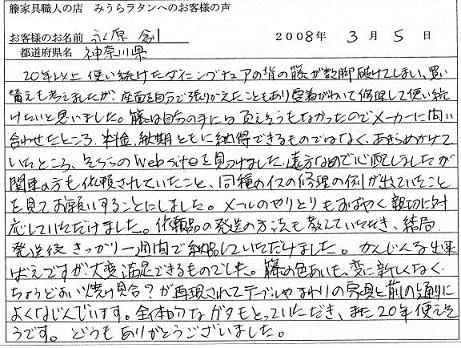 籐家具職人の店　みうらラタンへのお客様の声
お客様のお名前　永原　創　　2008年　3月　5日
都道府県名　神奈川県
20年以上使い続けたダイニングチェアの背の籐が数脚破けてしまい、買い
替えも考えましたが、座面を自分で張りかえたこともあり愛着がわいて修理して使い続
けたいと思いました。籐は自分の手には負えそうもなかったのでメーカーに問い
合わせたところ、料金、納期ともに納得できるものではなく、あきらめかけて
いたところ、そちらのWeb siteを見つけました。遠方なので心配しましたが
関東の方も依頼されていたこと、同種のイスの修理の例が出ていたこと
を見てお願いすることにしました。メールのやりとりもすばやく親切に対
応していただけました。依頼品の発送の方法も教えていただき、結局
発送後きっかり一週間で納品していただけました。かんじんな出来
ばえですが大変満足できるものでした。籐の色あいも、変に新しくなく
ちょうどよい焼け具合？が再現されてテーブルやまわりの家具と前の通りに
よくなじんでいます。全体的なガタもとっていただき、また20年使えそ
うです。どうもありがとうございました。